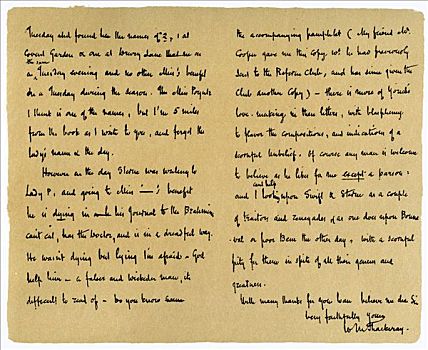 Tuesday and found her the names of 2, 1 at
Covent Garden or one at Drury Lane that on
the same
a Tuesday evening and no other Miss's benefit
on a Tuesday during the season. The Miss Poyntz
I think is one of the names, but I'm 5 miles
from the book as I write to you, and forget the
lady's name & the day.
However on the day Sterne was writing to
Lady P., and going to Miss ——'s benefit
he is dying in his Journal to the Bramine
can't eat, has the Doctor, and is in a dreadful way.
He wasn't dying but lying I'm afraid - God
help him - a falser and wickeder man, it
difficult to read of - Do you know
the accompanying pamphlet (My friend Mr.
Cooper gave me this copy, wh. he had previously
sent to the Reform Club, and has since given the
Club another copy) - there is more of Yorick's
love-making in these letters, with blasphemy
to flavor the compositions, and indications of a
scornful unbelief. Of course any man is welcome
to believe as he likes for me except a parson:
and I can't help looking upon Swift & Sterne as a couple
of traitors and renegades (as one does upon
or poor Bem the other day, with a scornful
pity for them in spite of all their genius and
greatness.
With many thanks for your loan believe me dear Sir
Very faithfully Yours
W M Thackeray.